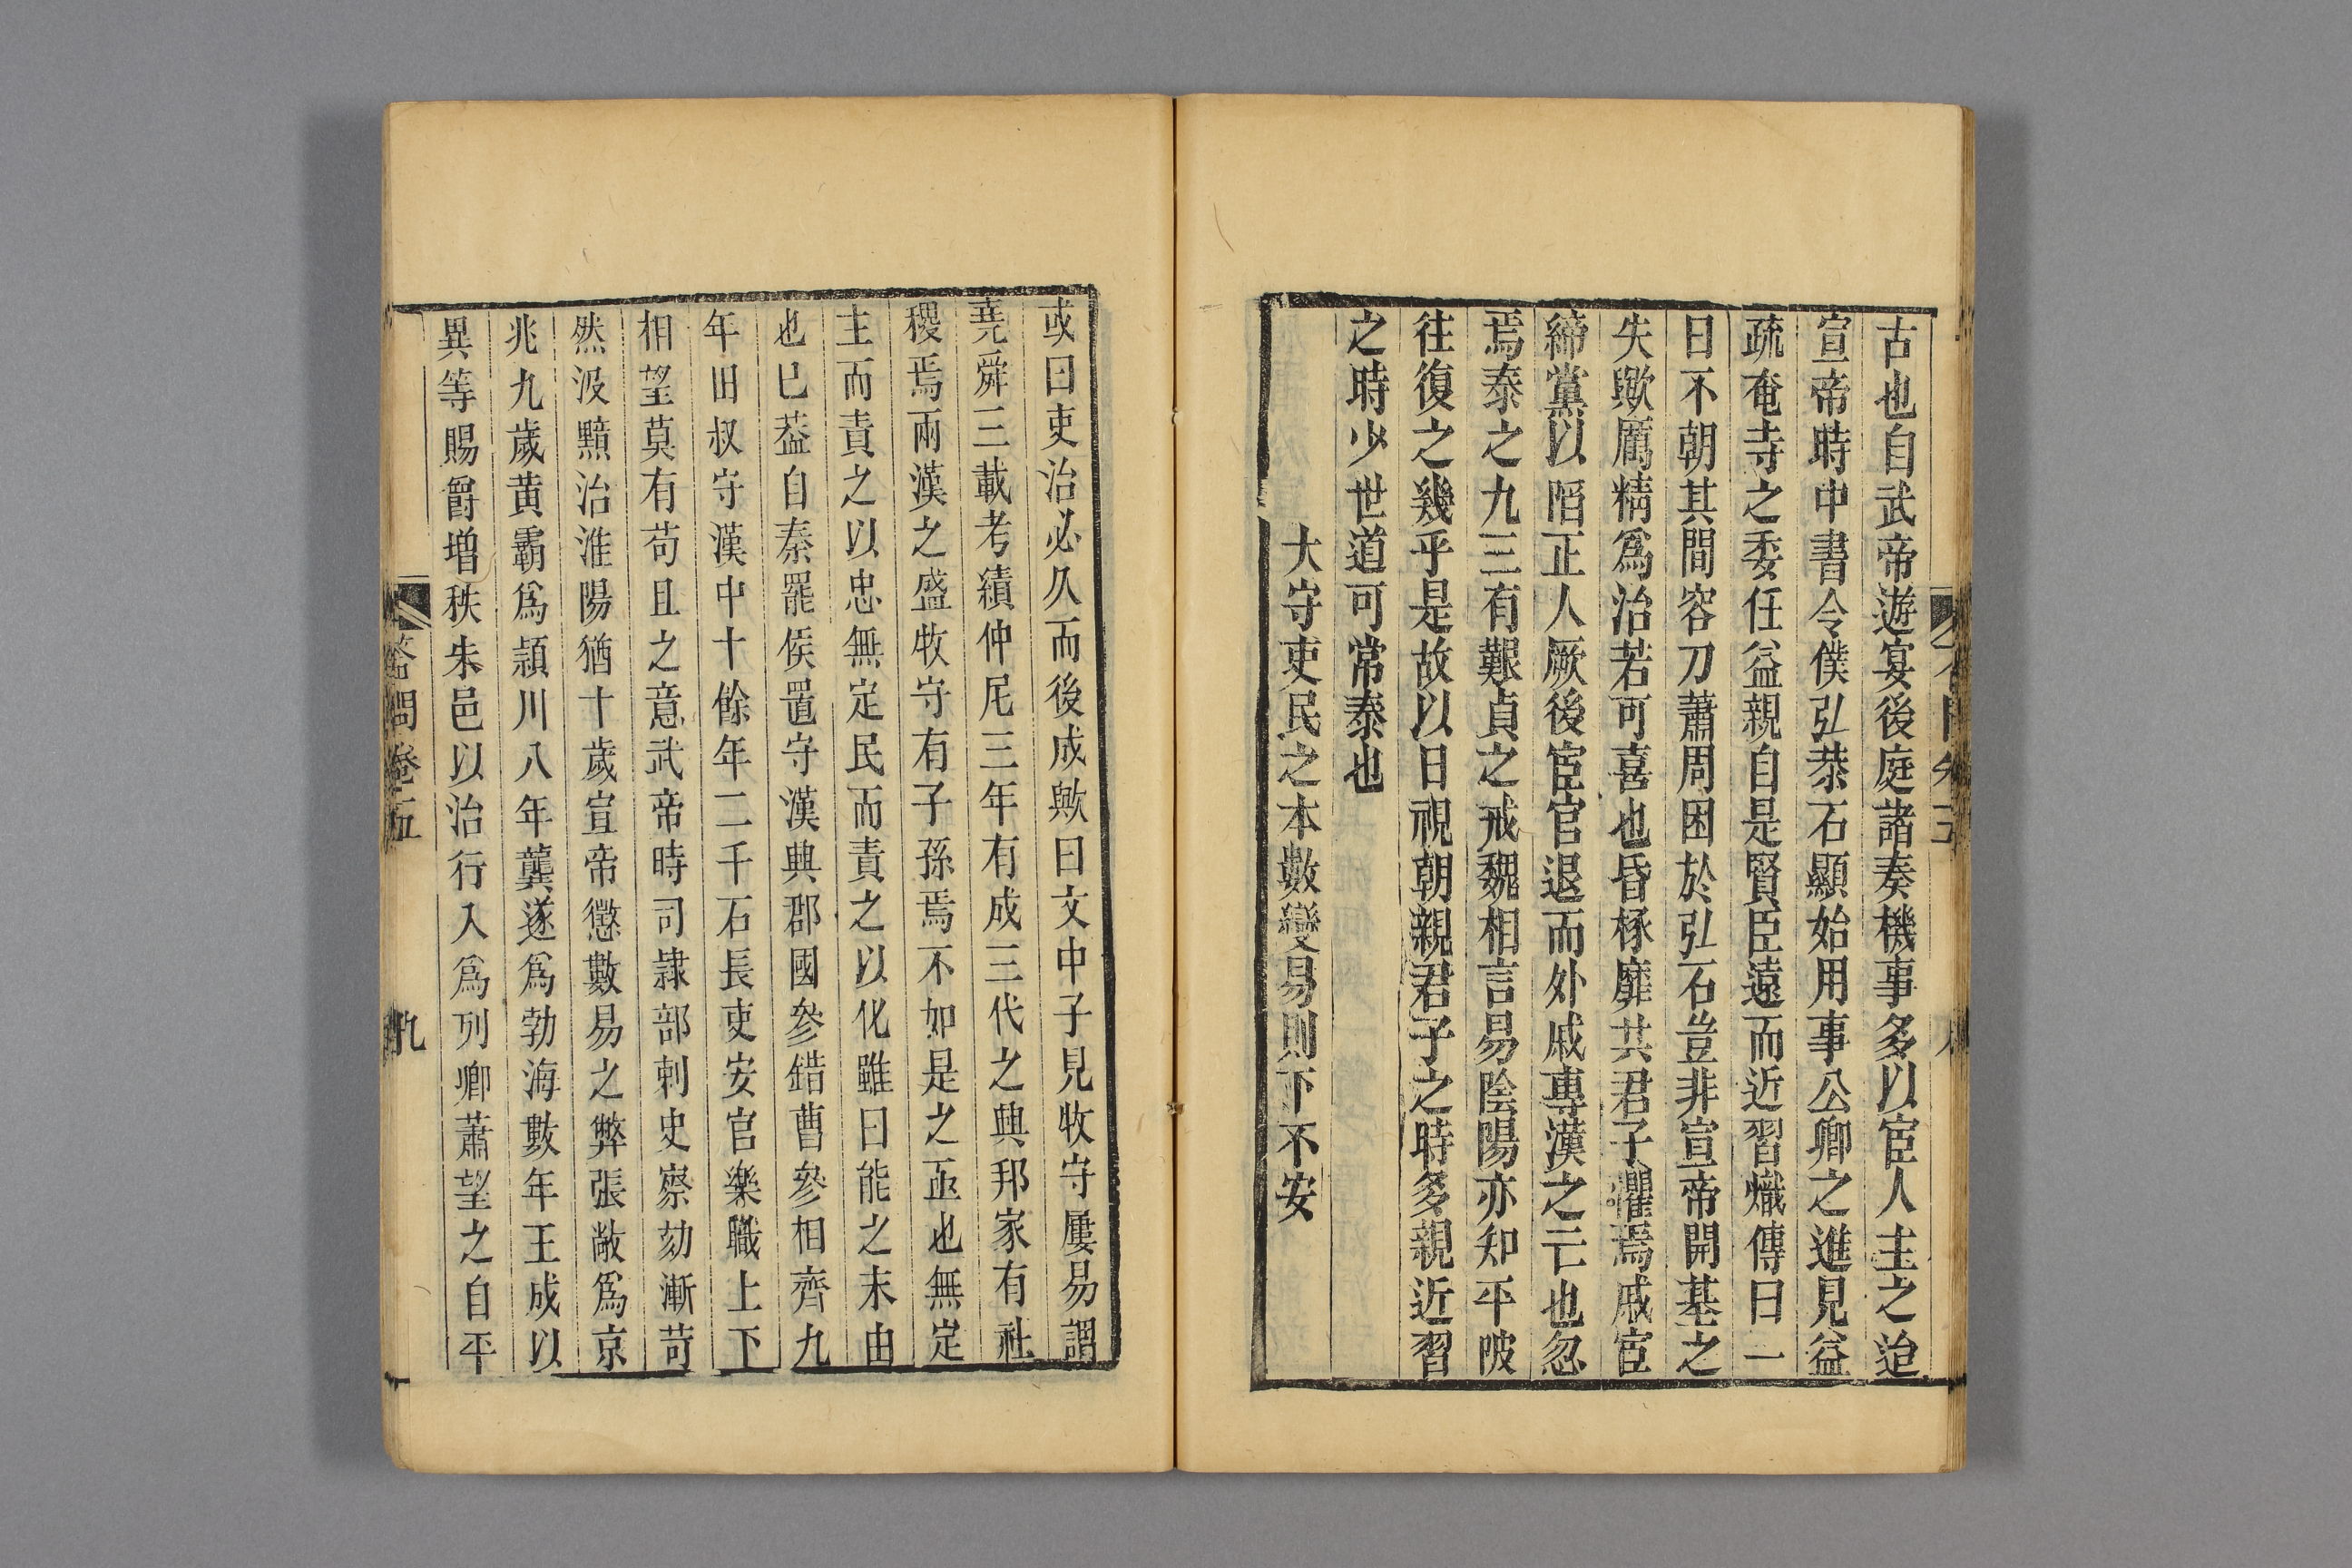 古也自武帝遊宴後庭諸奏機事多以宦人主之迨
宣帝時中書令僕弘恭石顯始用事公卿之進見益
疏奄寺之委任益親自是賢臣遠而近習熾傳曰一
日不朝其間容刀蕭周困於弘石豈非宣帝開基之
失歟厲精爲治若可喜也昏椓靡共君子懼焉戚宦
締黨以陷正人厥後宦官退而外戚專漢之亡也忽
焉泰之九三有艱貞之戒魏相言易陰陽亦知平陂
往復之幾乎是故以日視朝親君子之時多親近習
之時少世道可常泰也
大守吏民之本數變易則下不安
或曰吏治必久而後成歟曰文中子見牧守屢易謂
堯舜三載考績仲尼三年有成三代之興邦家有社
稷焉兩漢之盛牧守有子孫焉不如是之亟也無定
主而責之以忠無定民而責之以化雖曰能之末由
也已葢自秦罷侯置守漢興郡國參錯曹參相齊九
年田叔守漢中十餘年二千石長吏安官樂職上下
相望莫有苟且之意武帝時司隷部刺史察劾漸苛
然汲黯治淮陽猶十歲宣帝懲數易之弊張敞爲京
兆九歲黄霸爲頴川八年龔遂爲勃海數年王成以
異等賜爵増秩朱邑以治行入爲列卿蕭望之自平
答問卷五
九